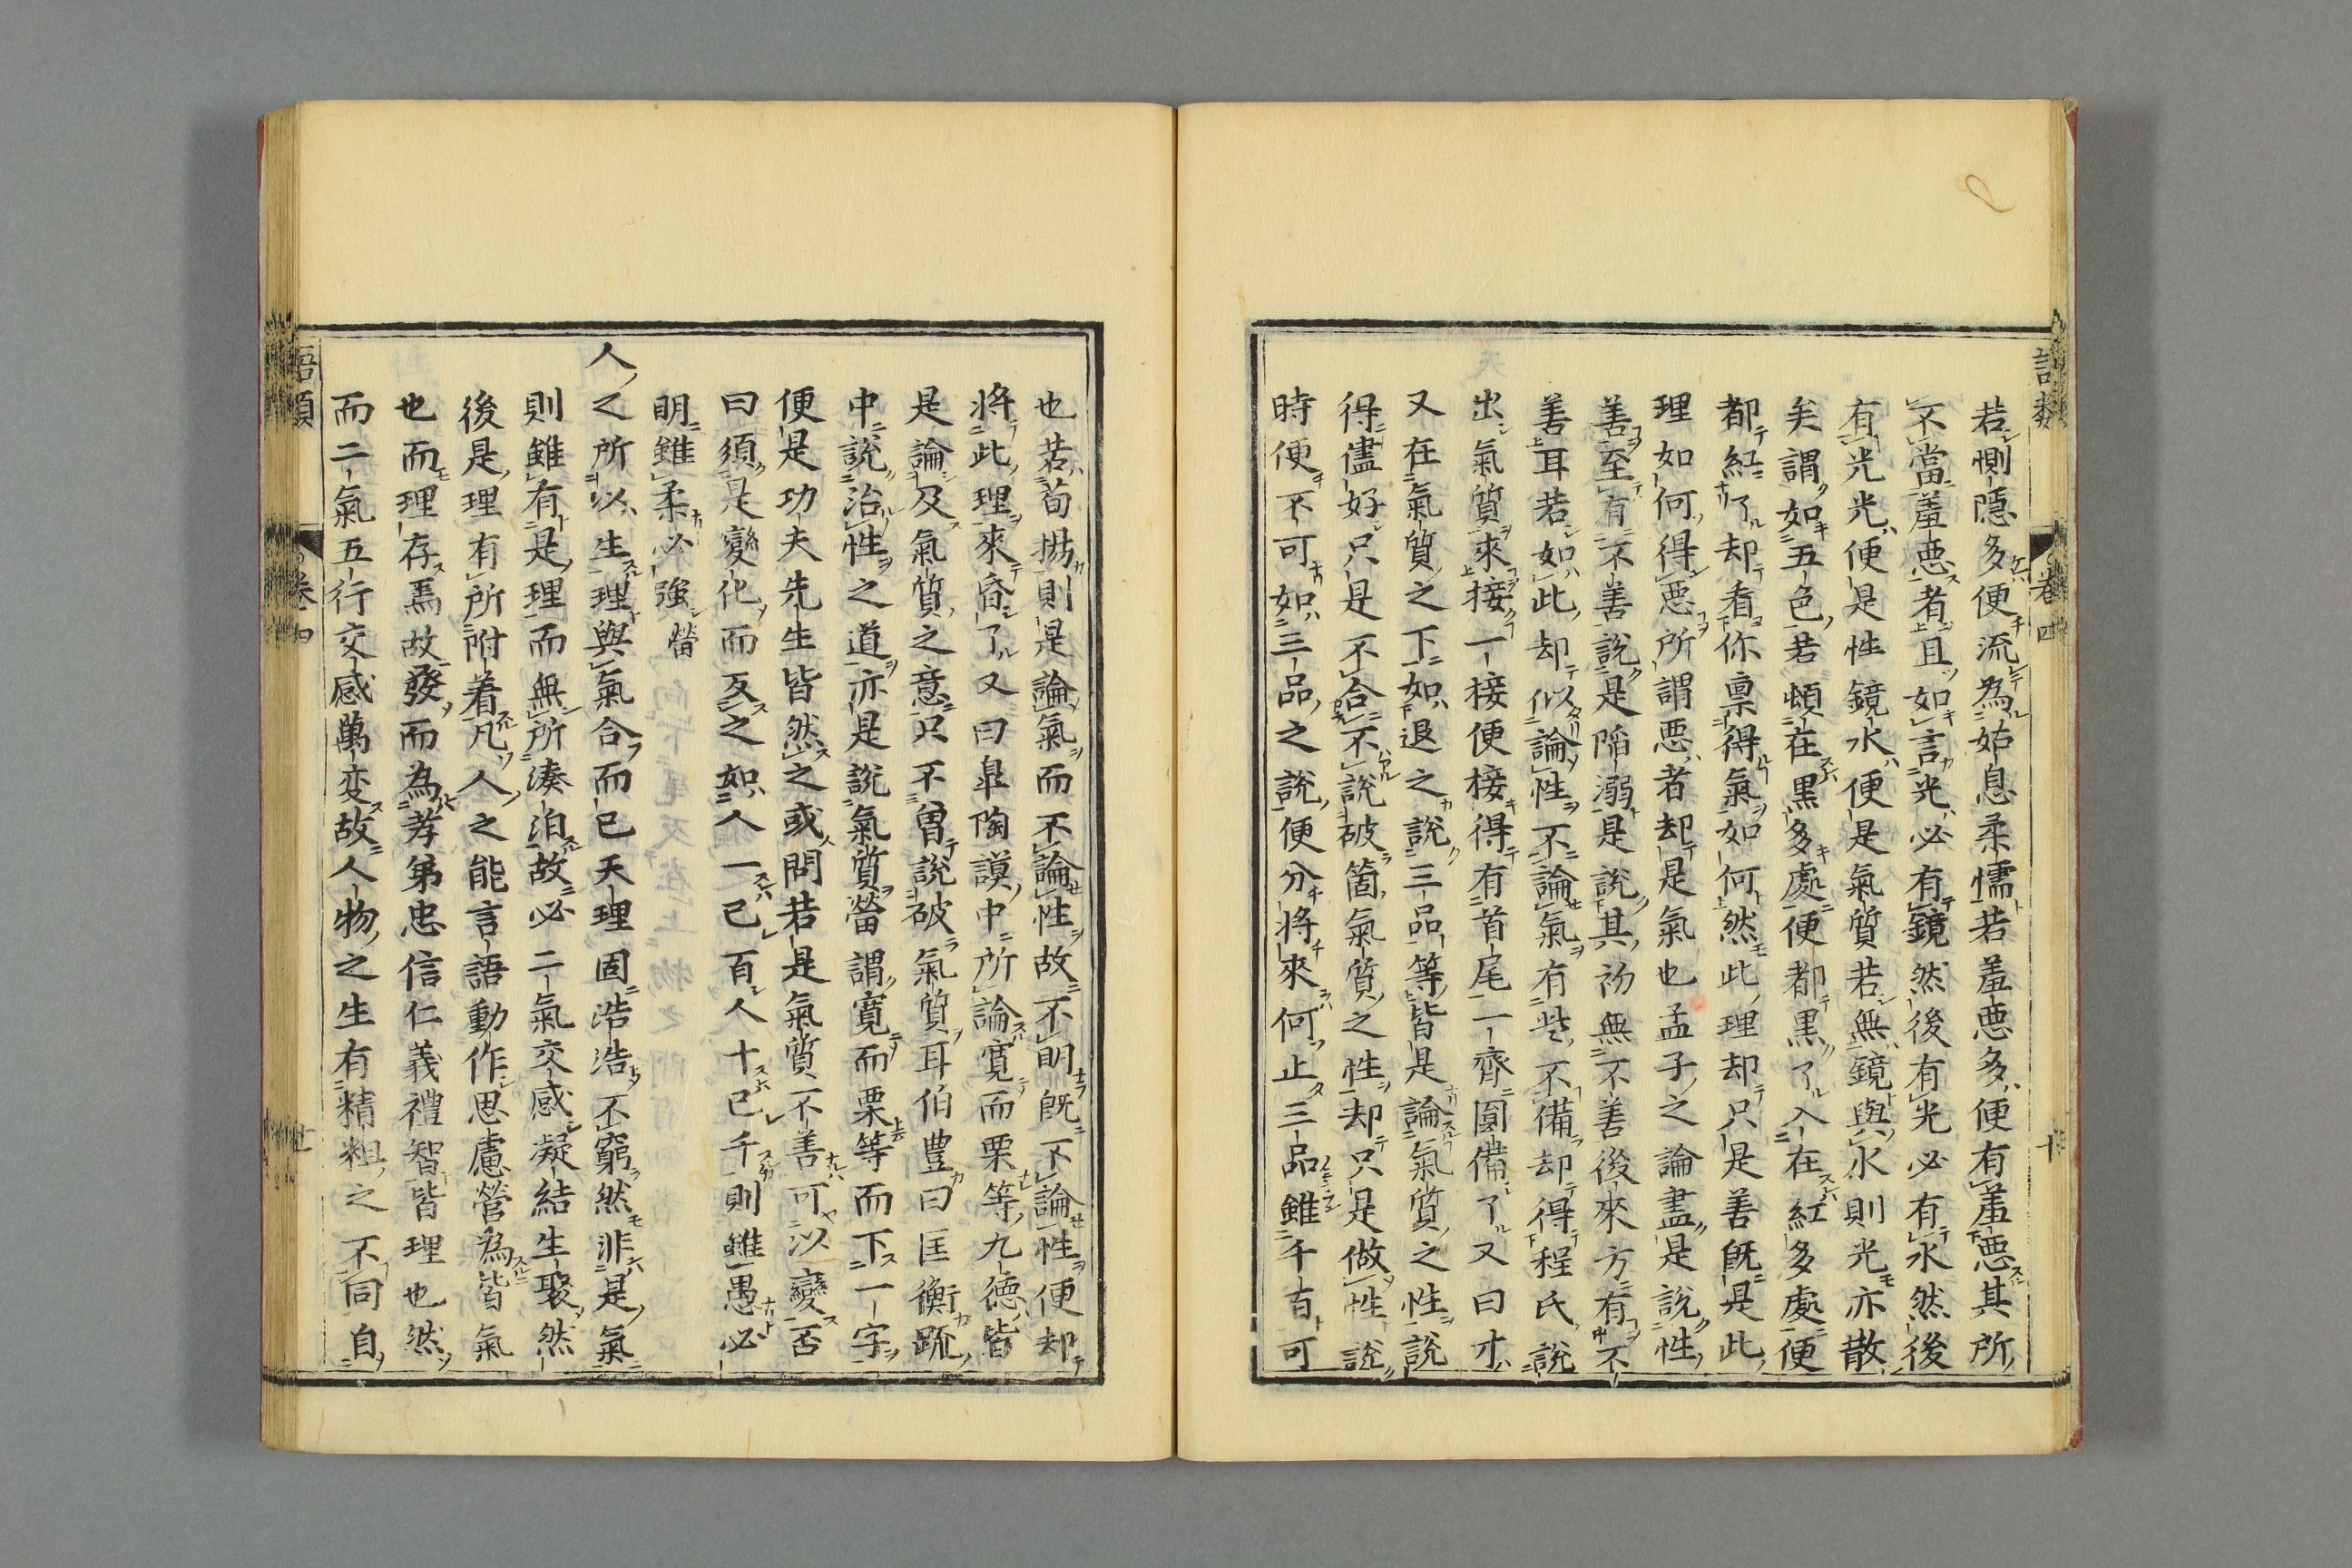 若惻隱多便流為姑息柔懦若羞惡多便有羞惡其所
不當羞惡者且如言光必有鏡然後有光必有水然後
有光光便是性鏡水便是氣質若無鏡與水則光亦散
矣謂如五色若頓在黒多處便都黒了入在紅多處便
都紅了却看你禀得氣如何然此理却只是善既是此
理如何得惡所謂惡者却是氣也孟子之論盡是説性
善至有不善説是陷溺是説其初無不善後來方有不
善耳若如此却似論性不論氣有些不備却得程氏説
出氣質來接一接便接得有首尾一齊圓備了又曰才
又在氣質之下如退之説三品等皆是論氣質之性説
得儘好只是不合不説破箇氣質之性却只是做性説
時便不可如三品之説便分將來何止三品雖千百可
也若荀揚則是論氣而不論性故不明既不論性便却
將此理來昏了又曰皐陶謨中所論寛而栗等九德皆
是論及氣質之意只不曾説破氣質耳伯豊曰匡衡䟽
中説治性之道亦是説氣質㽦謂寛而栗等而下一字
便是功夫先生皆然之或問若是氣質不善可以變否
曰須是變化而反之如人一己百人十己千則雖愚必
明雖柔必強㽦
人之所以生理與氣合而已天理固浩浩不窮然非是氣
則雖有是理而無所湊泊故必二氣交感凝結生聚然
後是理有所附着凡人之能言語動作思慮營為皆氣
也而理存焉故發而為孝弟忠信仁義禮智皆理也然
而二氣五行交感萬変故人物之生有精粗之不同自
語類
卷四
十
語類
卷四